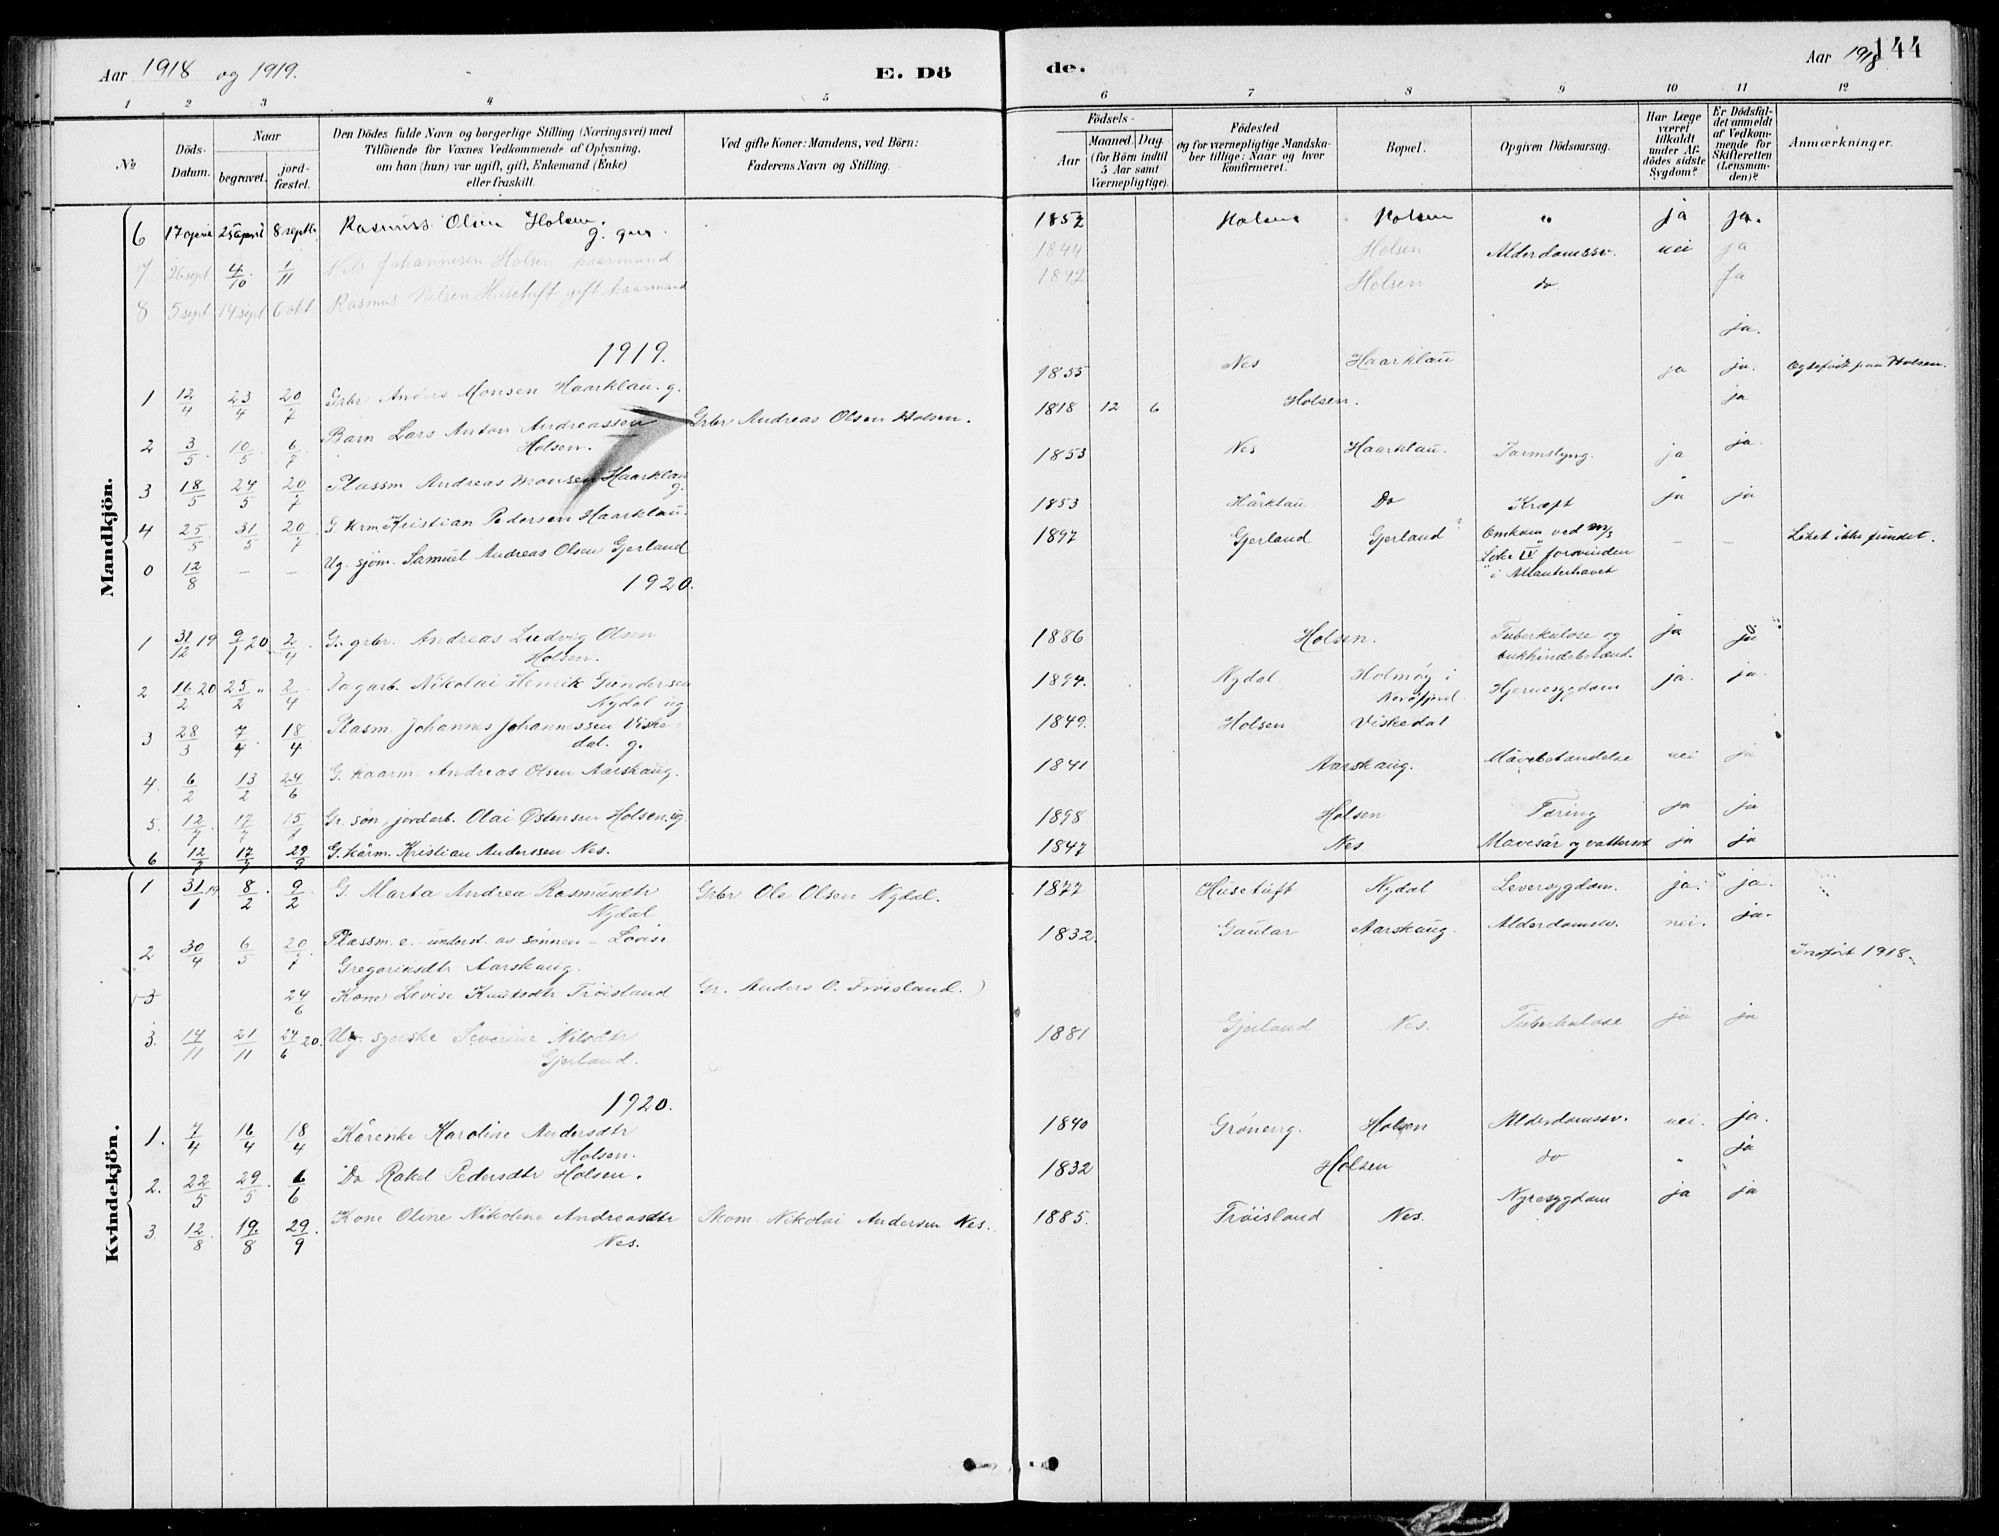 Aar 1918 og 1919.
E. Dö
de.
Aar 1918
144
1 2 3 4 5 6 7 8 9 10 11 12
No
Döds-Datum.
Naar
begravet.
jord-fæstet.
Den Dödes fulde Navn og borgerlige Stilling (Næringsvei) med
Tilföiende for Voxnes Vedkommende af Oplysning,
om han (hun) var ugift, gift, Enkemand (Enke)
eller fraskilt.
Ved gifte Koner: Mandens, ved Börn:
Faderens Navn og Stilling.
Födsels-
Aar
Maaned. Dag.
(for Börn indtil
5 Aar samt
Værnepligtige).
Födested
og for værnepligtige Mandska-
ber tillige: Naar og hvor
konfirmeret.
Bopæl.
Opgiven Dödsaarsag.
Har Læge
været
tilkaldt
under Af-
dödes sidste
Sygdom?
Er Dödsfal-
det anmeldt
af Vedkom-
mende for
Skifteretten
(Lensman-
den)?
Anmærkninger.
Mandkjön.
6 17 april 25 april 8 septbr Rasmus Olsen Holsen. 1852 Holsen Holsen " ja ja.
7 26 sept 4/10 1/11 Nils Johannesen Holsen kaarmand 1844 Holsen Alderdomssv. nei ja
8 5 sept 14 sept 6 okt. Rasmus Nilsen Husetuft gift kaarmand 1842 Holsen do. Ja
ja.
1919.
1 12/4 23/4 20/7 Grbr Anders Monsen Haarklau. g. 1855 Nes Haarklau ja ja.
2 3/5 10/5 6/7 Barn Lars Anton Andreassen Holsen. Grbr Andreas Olsen Holsen. 1818 12 6 Holsen. ja
3 18/5 24/5 20/7 Plassm Andreas Monsen Haarklau g. 1853 Nes Haarklau. Tarmslyng. ja ja.
4 25/5 31/5 20/7 G. krm. Kristian Pedersen Haarklau. 1853 Hårklau Do Kræft ja ja
0 12/8 – – Ug. sjöm. Samuel Andreas Olsen Gjerland 1897 Gjerland Gjerland ? Omkom ved m/s
IV forsvinden
i Atlanterhavet – – Liket ikke fundet.
1920.
1 31/12 19 9/1 20 2/4 G. grbr. Andreas Ludvig Olsen
Holsen. 1886 Holsen. Tuberkulose og
bukhindebetænd. ja ja
2 16/2 20 25/2 " 2/4 Dagarb. Nikolai Henrik Gundersen
Nydal ug 1894. Nydal Hjernesygdom ja. ja.
3 28/3 7/4. 18/4 Plasm. Johannes Johannessen Viske-
dal. g. 1849. Holsen Viskedal
4. 6/2 13/2 24/6 G. kaarm. Andreas Olsen Aarskaug. 1841 Aarskaug. Mavebetændelse nei ja
5. 12/7. 17/7 Gr. søn, jordarb. Olai Østensen Holsen. ug 1898 Holsen Tæring ja ja
6 12/7 17/7 29/9 G. kårm. Kristian Anderssen Nes. 1847 Nes Mavesår og vattersot ja ja
Kvindekjön.
1 31/1 19 8/2. 9/2. G. Marta Andrea Rasmusdtr
Nydal. Grbr Ole Olsen Nydal. 1877 Husetuft Nydal Leversygdom. ja. ja.
2 30/4 6/5 20/7 Plassm. e. – underst. av sønnen – Lovise
Gregoriusdtr Aarskaug. 1832. Gaular Aarskaug. Alderdomsv. nei. ja.
3 24/6 Kone Lovise Knutsdtr Tröisland Gr. Anders O. Tröisland.) Indført 1918.
3. 17/11 21/11 24/6 20. Ug. syerske Severine Nilsdtr
Gjerland. 1881 Gjerland Nes. Tuberkulose ja ja
1920.
1. 7/4 16/4 18/4 Kårenke Karoline Andersdtr
Holsen. 1840 Gröneng. Holsen Alderdomssv. nei. ja.
2. 22/5 29/5. 6/6 Do Rakel Pedersdtr Holsen. 1832 Holsen do " ja
3. 12/8 19/8 29/9 Kone Oline Nikoline Andreasdtr
Nes. Skom. Nikolai Andersen Nes. 1885. Tröisland Nes. Nyresygdom ja ja